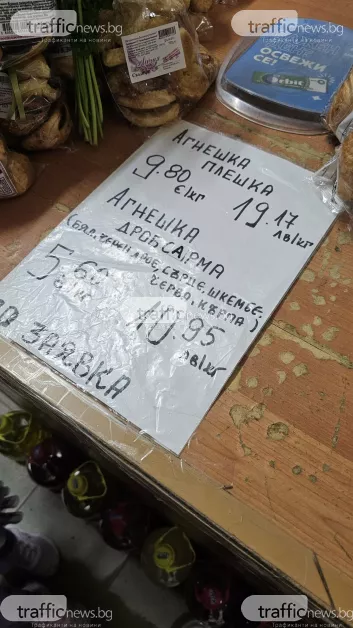 trafficnews.bg
Трафиканти на новини
trafficnews.bg
Трафиканти на новини
ОСВЕЖИ
СЕ!
orbit
АГНЕШКА
ПЛЕШКА
9.80
€/кг
19.17
лв/кг
АГНЕШКА
ДРОБ САРМА
(БЯЛ, ЧЕРЕН ДРОБ, СЪРЦЕ, ШКЕМБЕ,
ЧЕРВА, КЪРПА)
5.60
€/кг
10.95
лв/кг
ПО ЗАЯВКА
trafficnews.bg
Трафиканти на новини
trafficnews.bg
Трафиканти на новини
trafficnews.bg
Трафиканти на новини